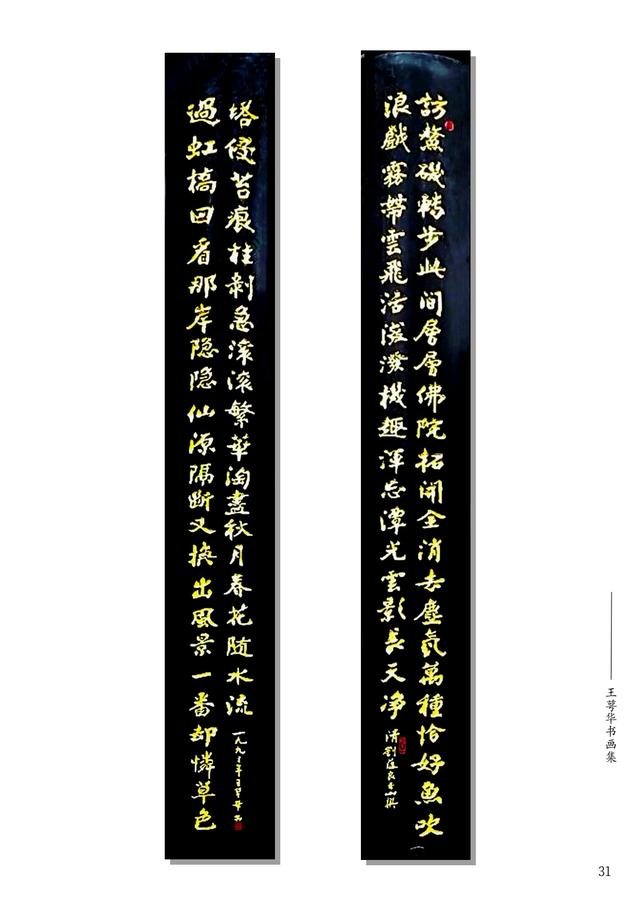 訪鰲磯轉步此间層層佛院拓開全消去塵氣萬種恰好魚吹
浪戲霧帶雲飛活潑潑機趣渾忘潭光雲影長天净
清劉良撰
過虹橋回看那岸隐隐仙源隔斷又換出風景一番却憐草色
塔侵苔痕柱剝急滾滾繁華淘盡秋月春花随水流
一九九年王萼華
王萼华书画集
31